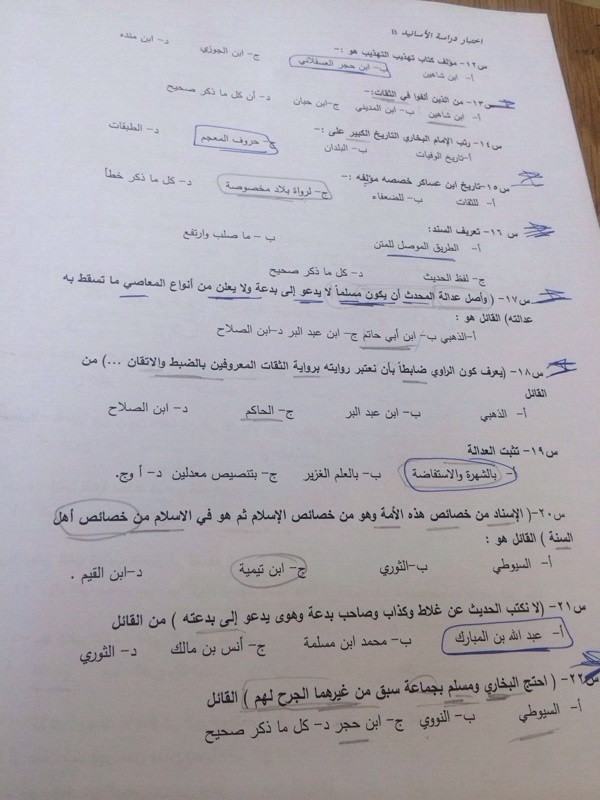 اختبار دراسة الأسانيد
س١٢- مؤلف كتاب تهذيب التهذيب هو :-
أ- ابن شاهين ب- ابن حجر العسقلاني ج- ابن الجوزي د- ابن منده
س١٣- من الذين ألفوا في الثقات:-
أ- ابن شاهين ب- ابن المديني ج-ابن حبان د- أن كل ما ذكر صحيح
س١٤- رتب الإمام البخاري التاريخ الكبير على :-
أ-تاريخ الوفيات ب- البلدان ج- حروف المعجم د- الطبقات
س١٥-تاريخ ابن عساكر خصصه مؤلفه :-
أ- للثقات ب- للضعفاء ج- لرواة بلاد مخصوصة د- كل ما ذكر خطأ
س ١٦- تعريف السند:
أ- الطريق الموصل للمتن ب – ما صلب وارتفع
ج- لفظ الحديث د- كل ما ذكر صحيح
س١٧- ( وأصل عدالة المحدث أن يكون مسلماً لا يدعو إلى بدعة ولا يعلن من أنواع المعاصي ما تسقط به
عدالته) القائل هو :
أ-الذهبي ب- ابن أبي حاتم ج- ابن عبد البر د-ابن الصلاح
س١٨- (يعرف كون الراوي ضابطاً بأن نعتبر روايته برواية الثقات المعروفين بالضبط والاتقان ...) من
القائل
أ- الذهبي ب- ابن عبد البر ج- الحاكم د- ابن الصلاح
س١٩- تثبت العدالة
أ- بالشهرة والاستفاضة ب- بالعلم الغزير ج- بتنصيص معدلين د- أ وج.
س٢٠- ( الإسناد من خصائص هذه الأمة وهو من خصائص الإسلام ثم هو في الاسلام من خصائص أهل
السنة ) القائل هو :
أ- السيوطي ب-الثوري ج- ابن تيمية د-ابن القيم .
س٢١- (لا نكتب الحديث عن غلاط وكذاب وصاحب بدعة وهوى يدعو إلى بدعته ) من القائل
أ- عبد الله بن المبارك ب- محمد ابن مسلمة ج- أنس بن مالك د- الثوري
س٢٢- ( احتج البخاري ومسلم بجماعة سبق من غيرهما الجرح لهم ) القائل
أ- السيوطي ب- النووي ج- ابن حجر د- كل ما ذكر صحيح